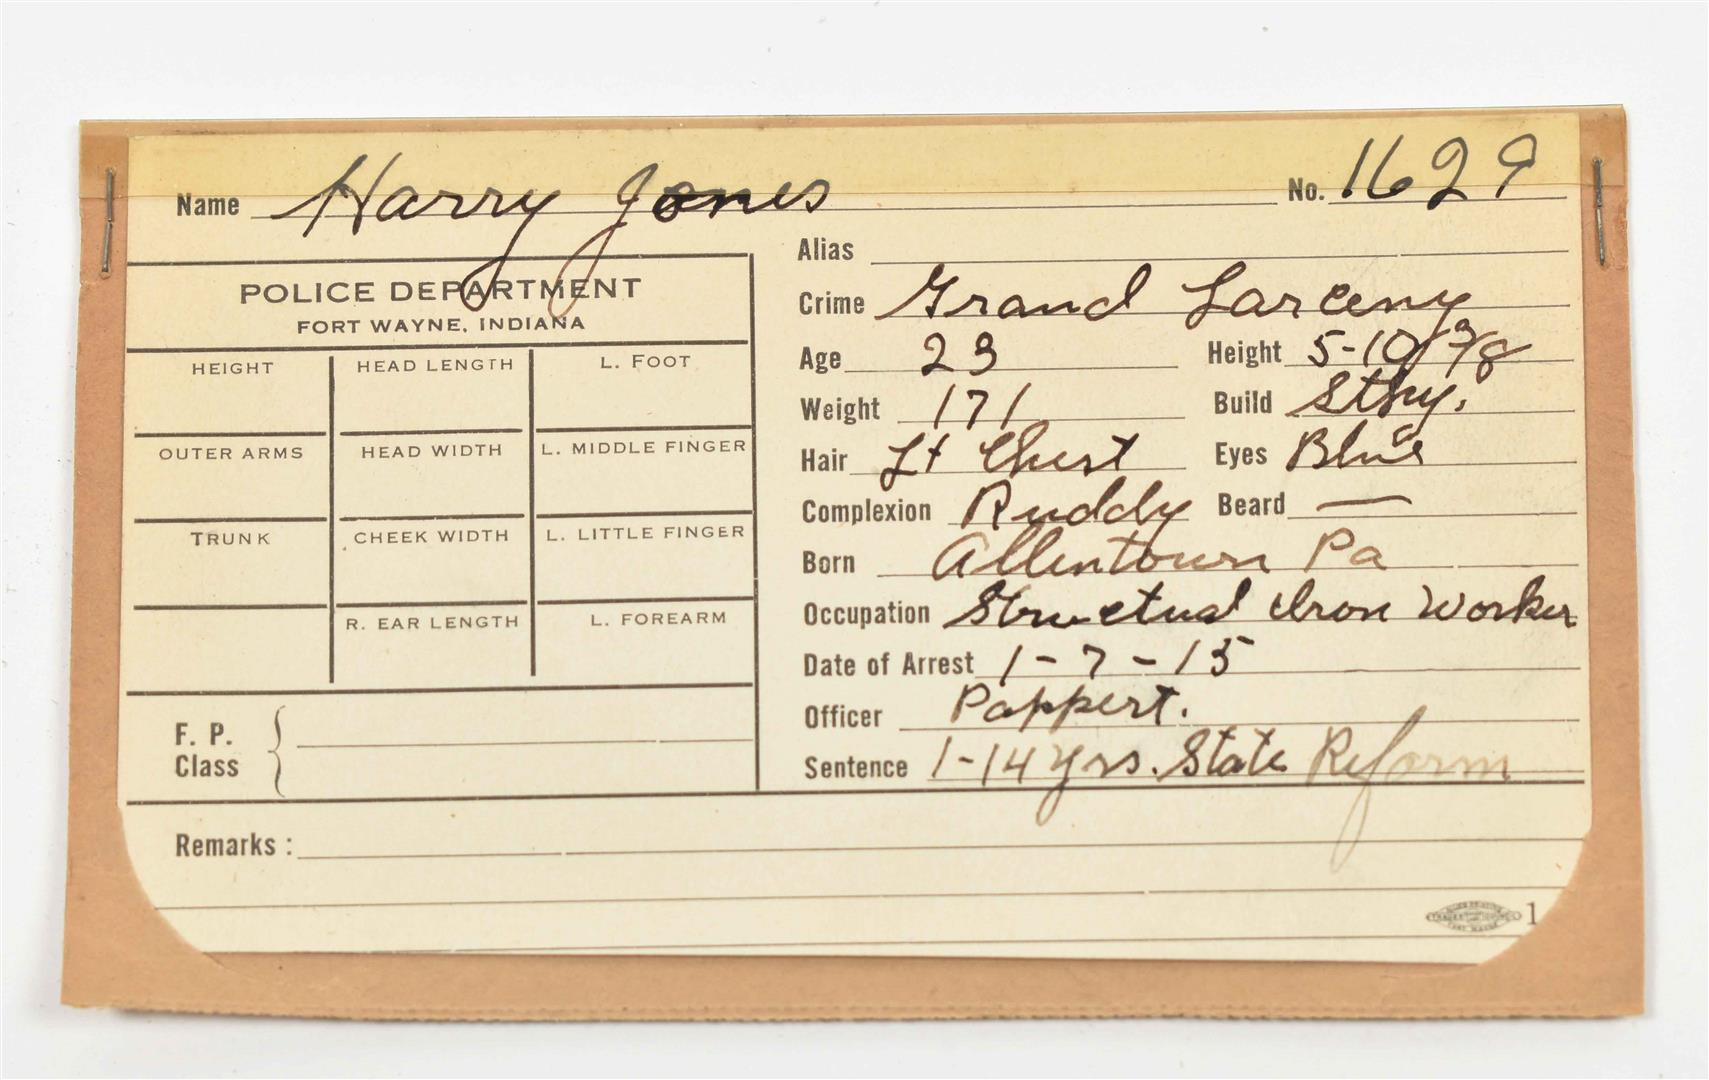 Name Harry Jones No. 1629
Alias
POLICE DEPARTMENT
FORT WAYNE, INDIANA
Crime Grand Larceny
Age 23 Height 5-10 3/8
Weight 171 Build Stky.
Hair Lt Chest Eyes Blue
Complexion Ruddy Beard —
Born Allentown Pa
Occupation Structual Iron Worker
Date of Arrest 1-7-15
Officer Pappert.
Sentence 1-14 yrs. State Reform
HEIGHT HEAD LENGTH L. FOOT
OUTER ARMS HEAD WIDTH L. MIDDLE FINGER
TRUNK CHEEK WIDTH L. LITTLE FINGER
R. EAR LENGTH L. FOREARM
F. P.
Class
Remarks :
1